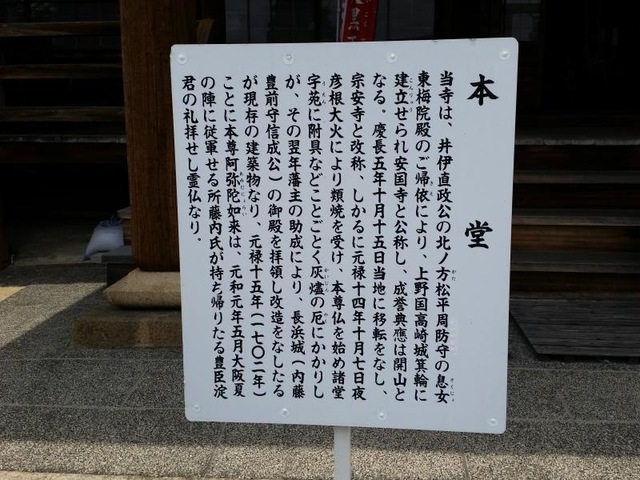 本堂
当寺は、井伊直政公の北ノ方松平周防守の息女
東梅院殿のご帰依により、上野国高崎城箕輪に
建立せられ安国寺と公称し、成誉典應は開山と
なる。慶長五年十月十五日当地に移転をなし、
宗安寺と改称、しかるに元禄十四年十月七日夜
彦根大火により類焼を受け、本尊仏を始め諸堂
宇苑に附具などことごとく灰燼の厄にかかりし
が、その翌年藩主の助成により、長浜城(内藤
豊前守信成公)の御殿を拝領し改造をなしたる
が現存の建築物なり、元禄十五年(一七〇二年)
ことに本尊阿弥陀如来は、元和元年五月大阪夏
の陣に従軍せる所藤内氏が持ち帰りたる豊臣淀
君の礼拝せし霊仏なり.